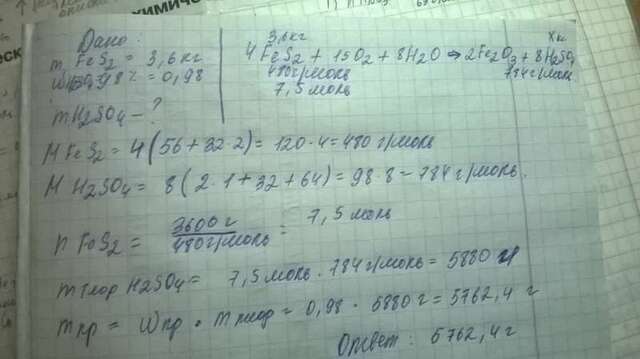 химиче
Дано:
m FeS2 = 3,6кг
W H2SO4 98% = 0,98
m H2SO4 - ?
3,6кг Xкг
4FeS2 + 15O2 + 8H2O → 2Fe2O3 + 8H2SO4
480г/моль 784г/моль
7,5 моль
M FeS2 = 4(56+32·2) = 120·4 = 480 г/моль
M H2SO4 = 8(2·1+32+64) = 98·8 = 784 г/моль.
n FeS2 = 3600 г / 480г/моль = 7,5 моль
m теор H2SO4 = 7,5 моль · 784 г/моль = 5880 г
m пр = Wпр · m теор = 0,98 · 5880 г = 5762,4 г
Ответ: 5762,4 г